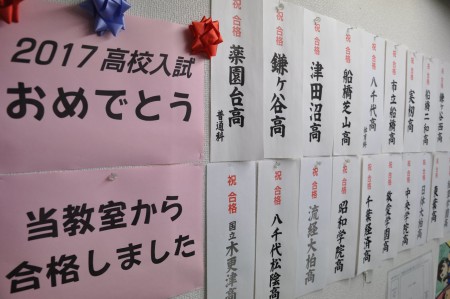 2017 高校入試
おめでとう
当教室から
合格しました
祝 合格
薬園台高
普通科
祝 合格
鎌ヶ谷高
祝 合格
津田沼高
祝 合格
船橋芝山高
祝 合格
八千代高
祝 合格
市立船橋高
祝 合格
実籾高
祝 合格
船橋二和高
祝 合格
鎌ヶ谷西高
祝 合格
国立木更津高
祝 合格
八千代松陰高
祝 合格
流経大柏高
祝 合格
昭和学院高
祝 合格
千葉経済高
祝 合格
敬愛学園高
祝 合格
中央学院高
祝 合格
日体大柏高
東葉高